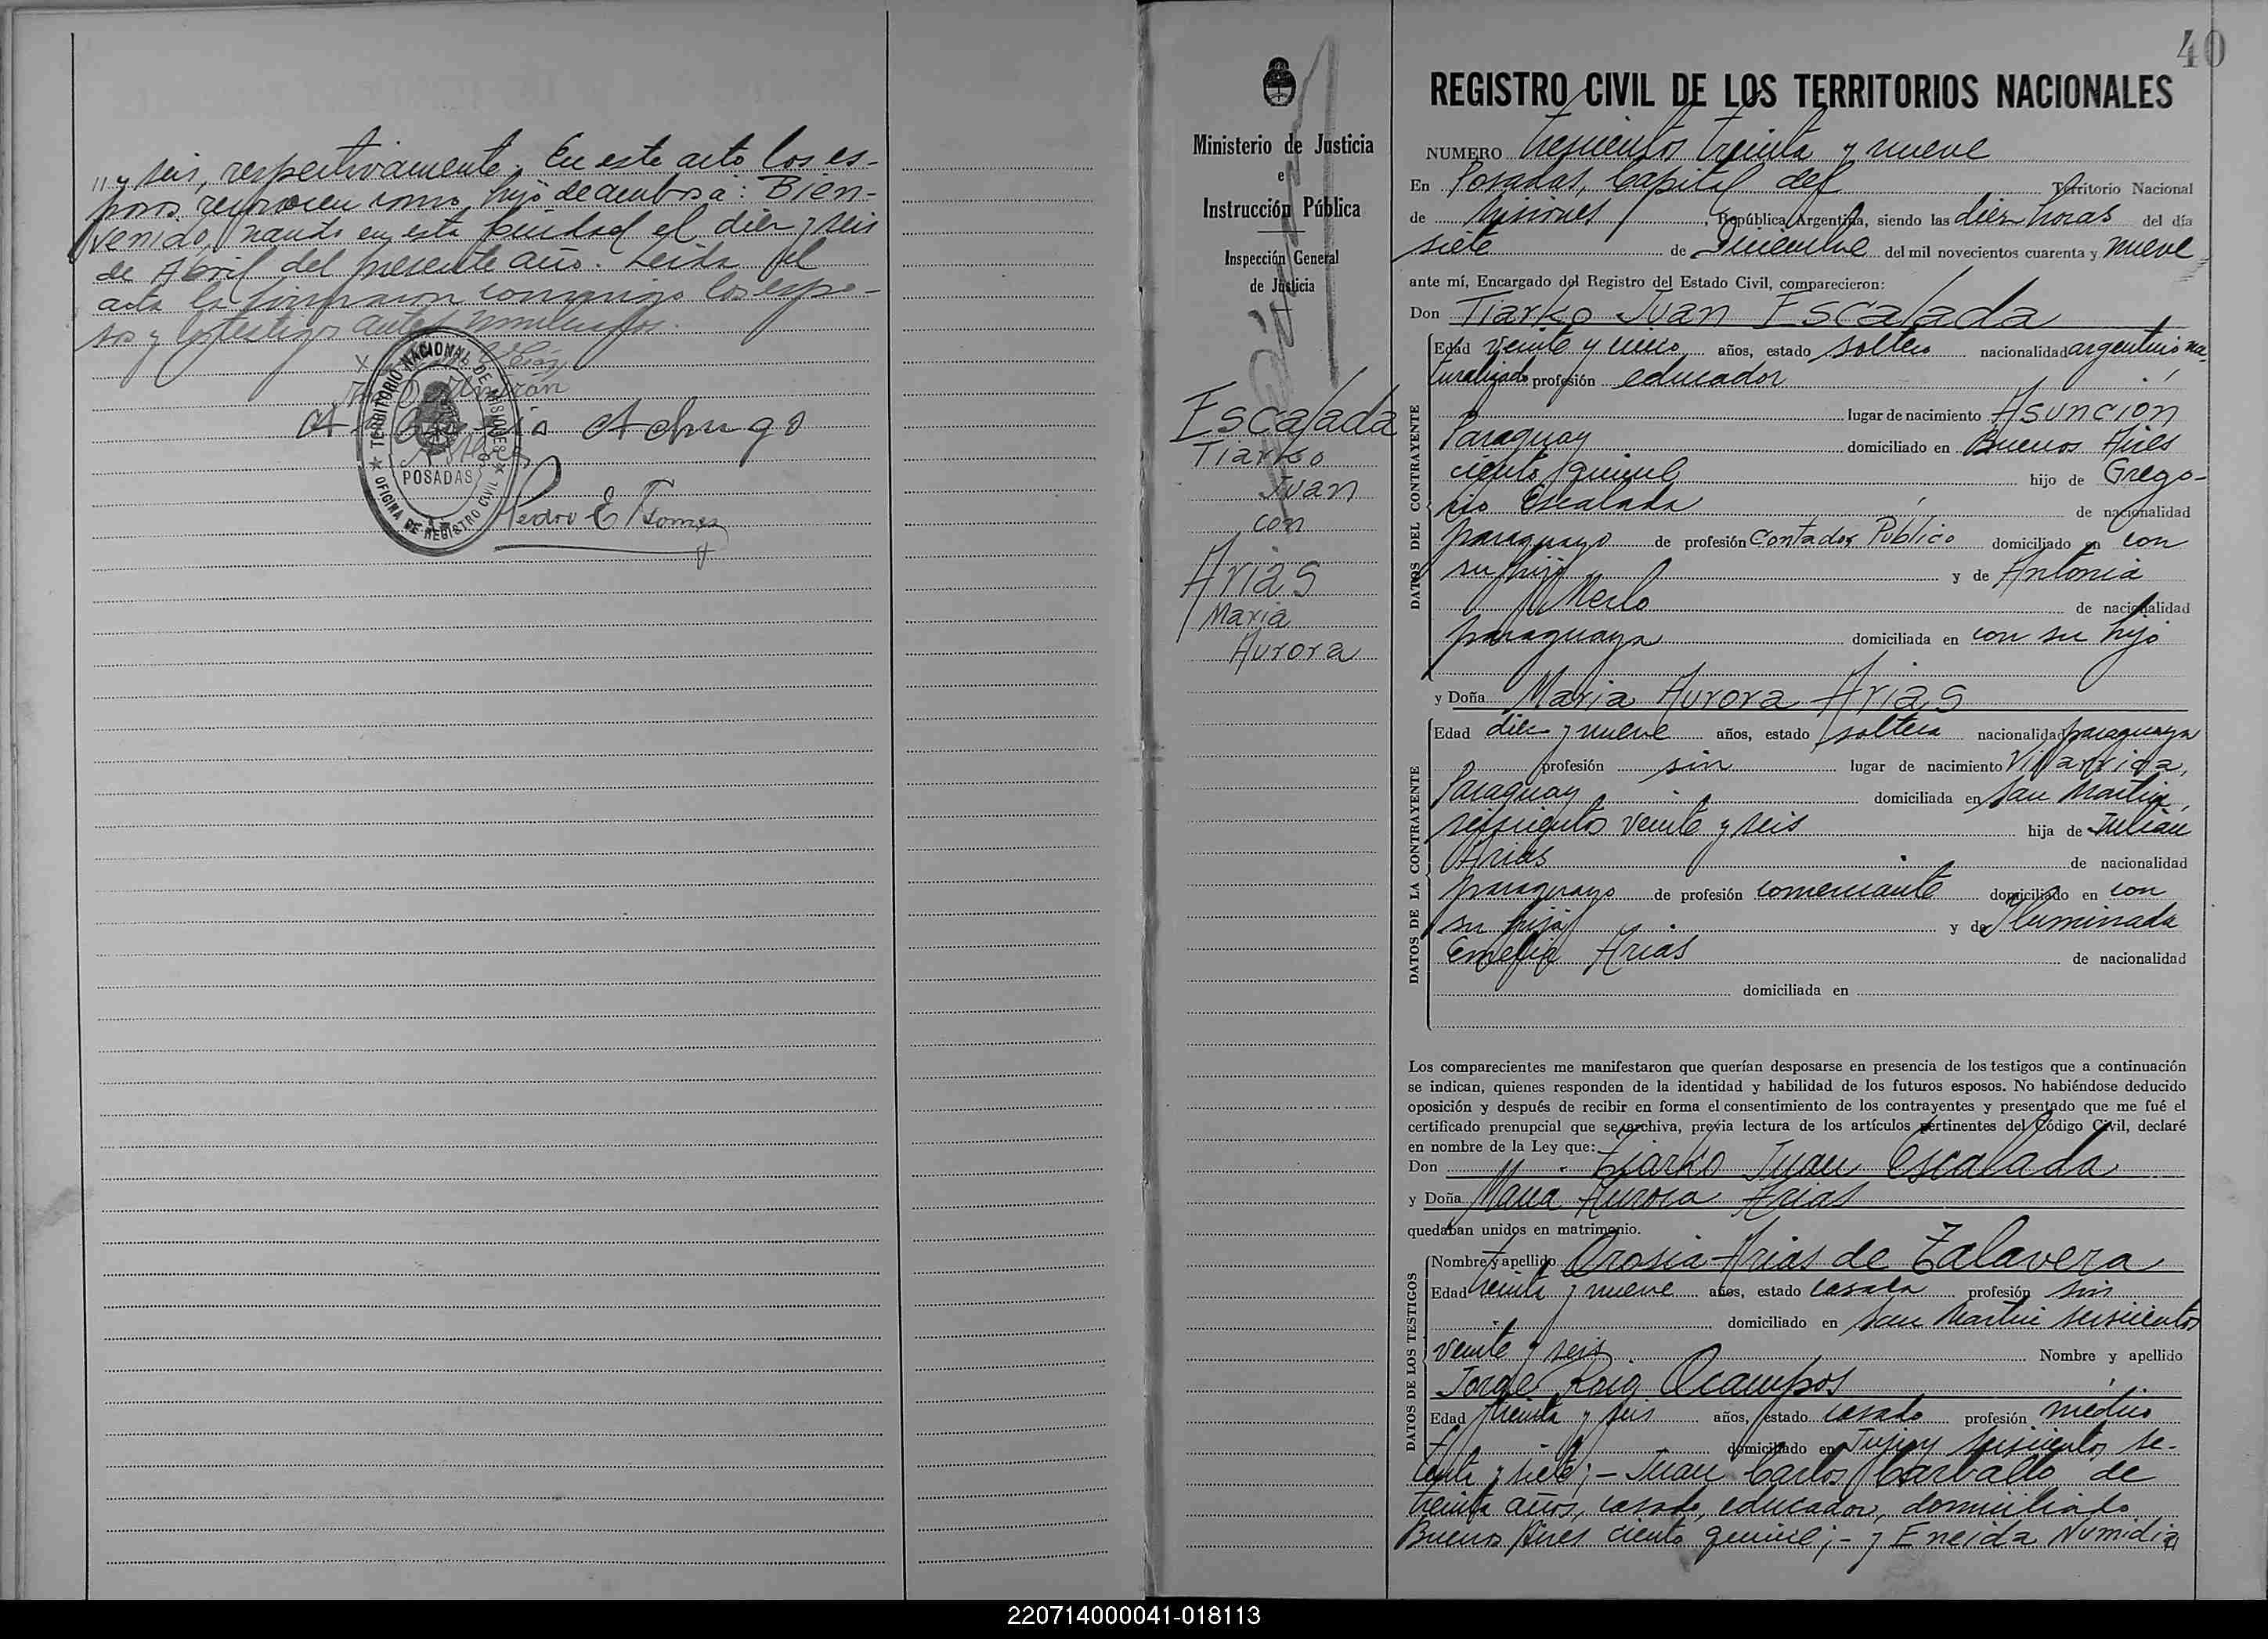 " y seis, respectivamente. En este acto los es-
posos reconocen como hijo de ambos a: Bien-
venido, nacido en esta ciudad el diez y seis
de Abril del presente año. Leída el
acta la firmaron conmigo los espo-
sos y los testigos antes nombrados.
Achugo
TERRITORIO NACIONAL DE MISIONES
POSADAS
OFICINA DE REGISTRO CIVIL
Pedro E
Ministerio de Justicia
e
Instrucción Pública
Inspección General
de Justicia
Escalada
Tiarko
Juan
con
Arias
Maria
Aurora
40
REGISTRO CIVIL DE LOS TERRITORIOS NACIONALES
NUMERO trescientos treinta y nueve
En Posadas, Capital del Territorio Nacional
de Misiones, República Argentina, siendo las diez horas del día
siete de Diciembre del mil novecientos cuarenta y nueve
ante mí, Encargado del Registro del Estado Civil, comparecieron:
Don Tiarko Juan Escalada
DATOS DEL CONTRAYENTE
Edad veinte y cinco años, estado soltero nacionalidad argentino na-
turalizado profesión educador
lugar de nacimiento Asunción
Paraguay domiciliado en Buenos Aires
ciento quince hijo de Grego-
rio Escalada de nacionalidad
paraguayo de profesión Contador Público domiciliado en con
su hijo y de Antonia
Merlo de nacionalidad
paraguaya domiciliada en con su hijo
y Doña Maria Aurora Arias
DATOS DE LA CONTRAYENTE
Edad diez y nueve años, estado soltera nacionalidad paraguaya
profesión sin lugar de nacimiento Villarrica,
Paraguay domiciliada en San Martin,
seiscientos veinte y seis hija de Julian
Arias de nacionalidad
paraguayo de profesión comerciante domiciliado en con
su hija y de Iluminada
Emelia Arias de nacionalidad
domiciliada en
Los comparecientes me manifestaron que querían desposarse en presencia de los testigos que a continuación
se indican, quienes responden de la identidad y habilidad de los futuros esposos. No habiéndose deducido
oposición y después de recibir en forma el consentimiento de los contrayentes y presentado que me fué el
certificado prenupcial que se archiva, previa lectura de los artículos pertinentes del Código Civil, declaré
en nombre de la Ley que:
Don Tiarko Juan Escalada
y Doña Maria Aurora Arias
quedaban unidos en matrimonio.
DATOS DE LOS TESTIGOS
Nombre y apellido Orosia Arias de Talavera
Edad treinta y nueve años, estado casada profesión sin
domiciliado en San Martin seiscientos
veinte y seis Nombre y apellido
Jorge Roig Ocampos
Edad treinta y seis años, estado casado profesión médico
domiciliado en Jujuy seiscientos se-
tenta y siete; - Juan Carlos Carballo de
treinta años, casado, educador, domiciliado
Buenos Aires ciento quince; - y Eneida Numidia
220714000041-018113